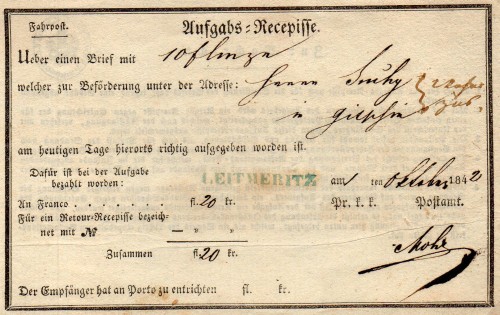 Fahrpost.
Aufgabs-Recepisse.
Ueber einen Brief mit 10 f
welcher zur Beförderung unter der Adresse: Herrn Suchy
in Gitschin
am heutigen Tage hierorts richtig aufgegeben worden ist.
Dafür ist bei der Aufgabe
bezahlt worden:
LEITMERITZ
am 1 ten Oktober 1842
An Franco . . . . . . . fl. 20 kr.
Pr. k. k. Postamt.
Für ein Retour-Recepisse bezeich-
net mit № — „ „
Mohr
Zusammen fl. 20 kr.
Der Empfänger hat an Porto zu entrichten fl. kr.